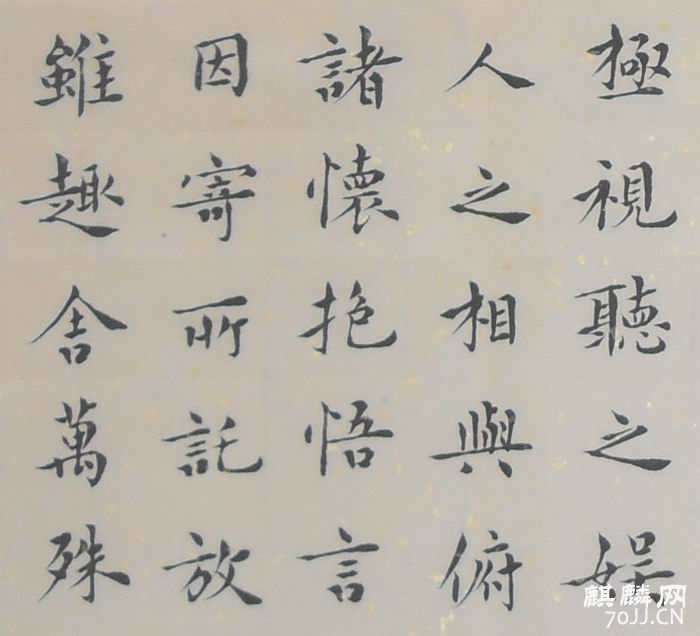 極視聽之娱
人之相與俯
諸懷抱悟言
因寄所託放
雖趣舍萬殊
麒麟网
70JJ.CN